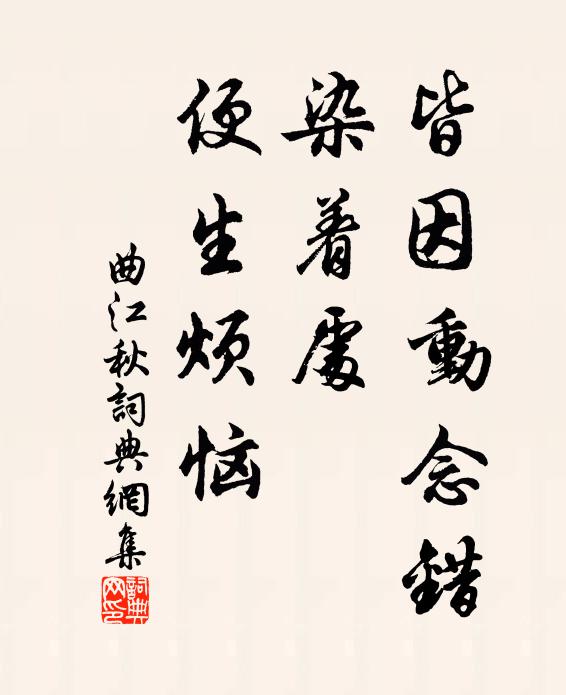 皆因動念錯
染着處
便生烦恼
曲江秋詞典網集
詞典网印